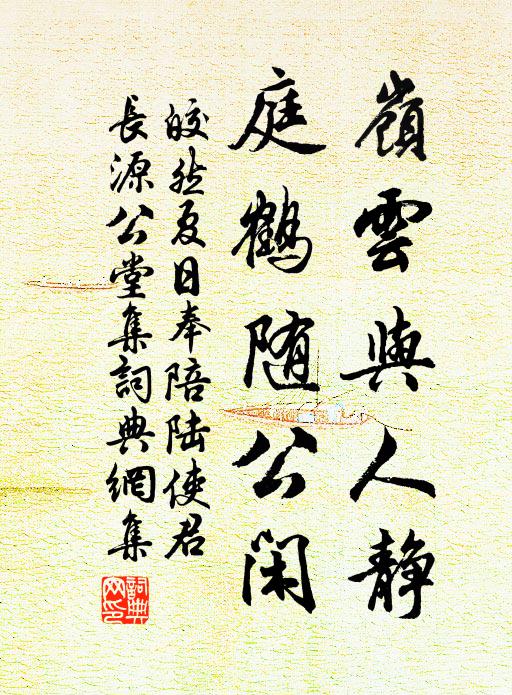 嶺雲與人靜
庭鶴随公閑
皎然夏日奉陪陆使君
長源公堂集詞典網集
詞典
网印